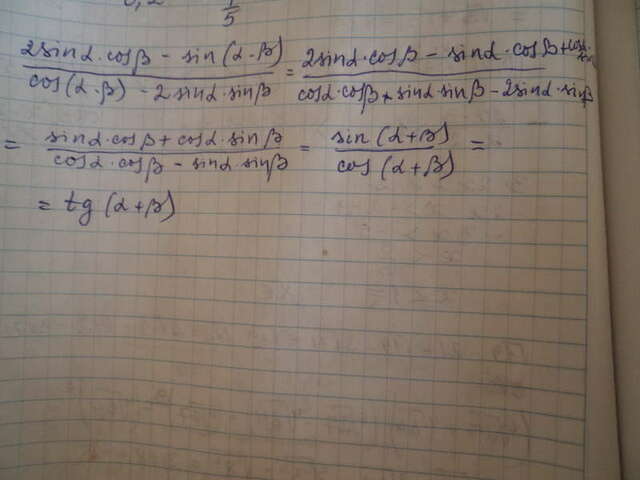 0,2 1/5
(2sinα·cosβ - sin(α-β))/(cos(α-β) - 2sinα·sinβ) = (2sinα·cosβ - sinα·cosβ + cosα·)/(cosα·cosβ + sinα·sinβ - 2sinα·sinβ)
= (sinα·cosβ + cosα·sinβ)/(cosα·cosβ - sinα·sinβ) = sin(α+β)/cos(α+β) =
= tg(α+β)